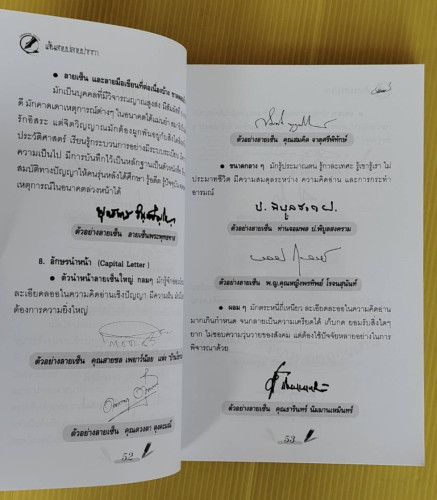 เส้นสายปลายปากกา
● ลายเซ็น และลายมือเขียนที่ต่อเนื่องบ้าง
มักเป็นบุคคลที่มีวิจารณญาณสูงส่ง
ดี มักคาดเดาเหตุการณ์ต่างๆ ในอนาคตได้
รักอิสระ แต่จิตวิญญาณมักต้องผูกพันอยู่กับ
ประวัติศาสตร์ เรียนรู้กระบวนการอย่างมีระบบระเบียบ
ความเป็นไป มีการบันทึกไว้เป็นหลักฐาน
สมบัติทางปัญญาให้คนรุ่นหลังได้ศึกษา รู้อดีต รู้ปัจจุบัน
เหตุการณ์ในอนาคตล่วงหน้าได้
ตัวอย่างลายเซ็น ลายเซ็นพระพุทธทาส
8. อักษรนำหน้า (Capital Letter)
● ตัวนำหน้าลายเซ็นใหญ่ กลมๆ มักรู้จัก
ละเอียดลออในความคิดอ่านเชิงปัญญา มีความฝัน
ต้องการความยิ่งใหญ่
ตัวอย่างลายเซ็น คุณสายชล เพยาว์น้อย
ตัวอย่างลายเซ็น คุณดวงตา ตุงคะมณี
52
ตัวอย่างลายเซ็น คุณสมคิด จาตุศรีพิทักษ์
● ขนาดกลาง ๆ มักรู้ประมาณตน รู้กาละเทศะ รู้เขารู้เรา ไม่
ประมาทชีวิต มีความสมดุลระหว่าง ความคิดอ่าน และการกระทำ
อารมณ์
ป. พิบูลสงคราม
ตัวอย่างลายเซ็น ท่านจอมพล ป.พิบูลสงคราม
ตัวอย่างลายเซ็น พ.ญ.คุณหญิงพรทิพย์ โรจนสุนันท์
● ผอม ๆ มักตระหนี่ถี่เหนียว ละเอียดละออในความคิดอ่าน
มากเกินกำหนด จนกลายเป็นความเครียดได้ เก็บกด ยอมรับสิ่งใดๆ
ยาก ไม่ชอบความวุ่นวายของสังคม แต่ต้องใช้ปัจจัยหลายอย่างในการ
พิจารณาด้วย
ตัวอย่างลายเซ็น คุณธารินทร์ นิมมานเหมินทร์
53